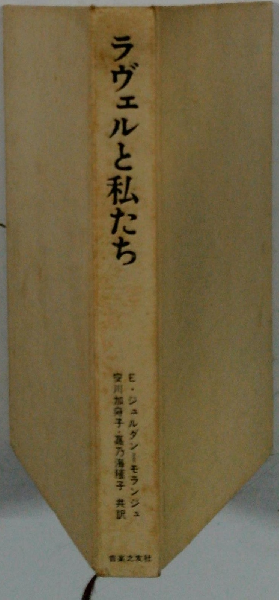 ラヴェルと私たち
E・ジュルダン=モランジュ
安川加寿子・嘉乃海隆子 共訳
音楽之友社